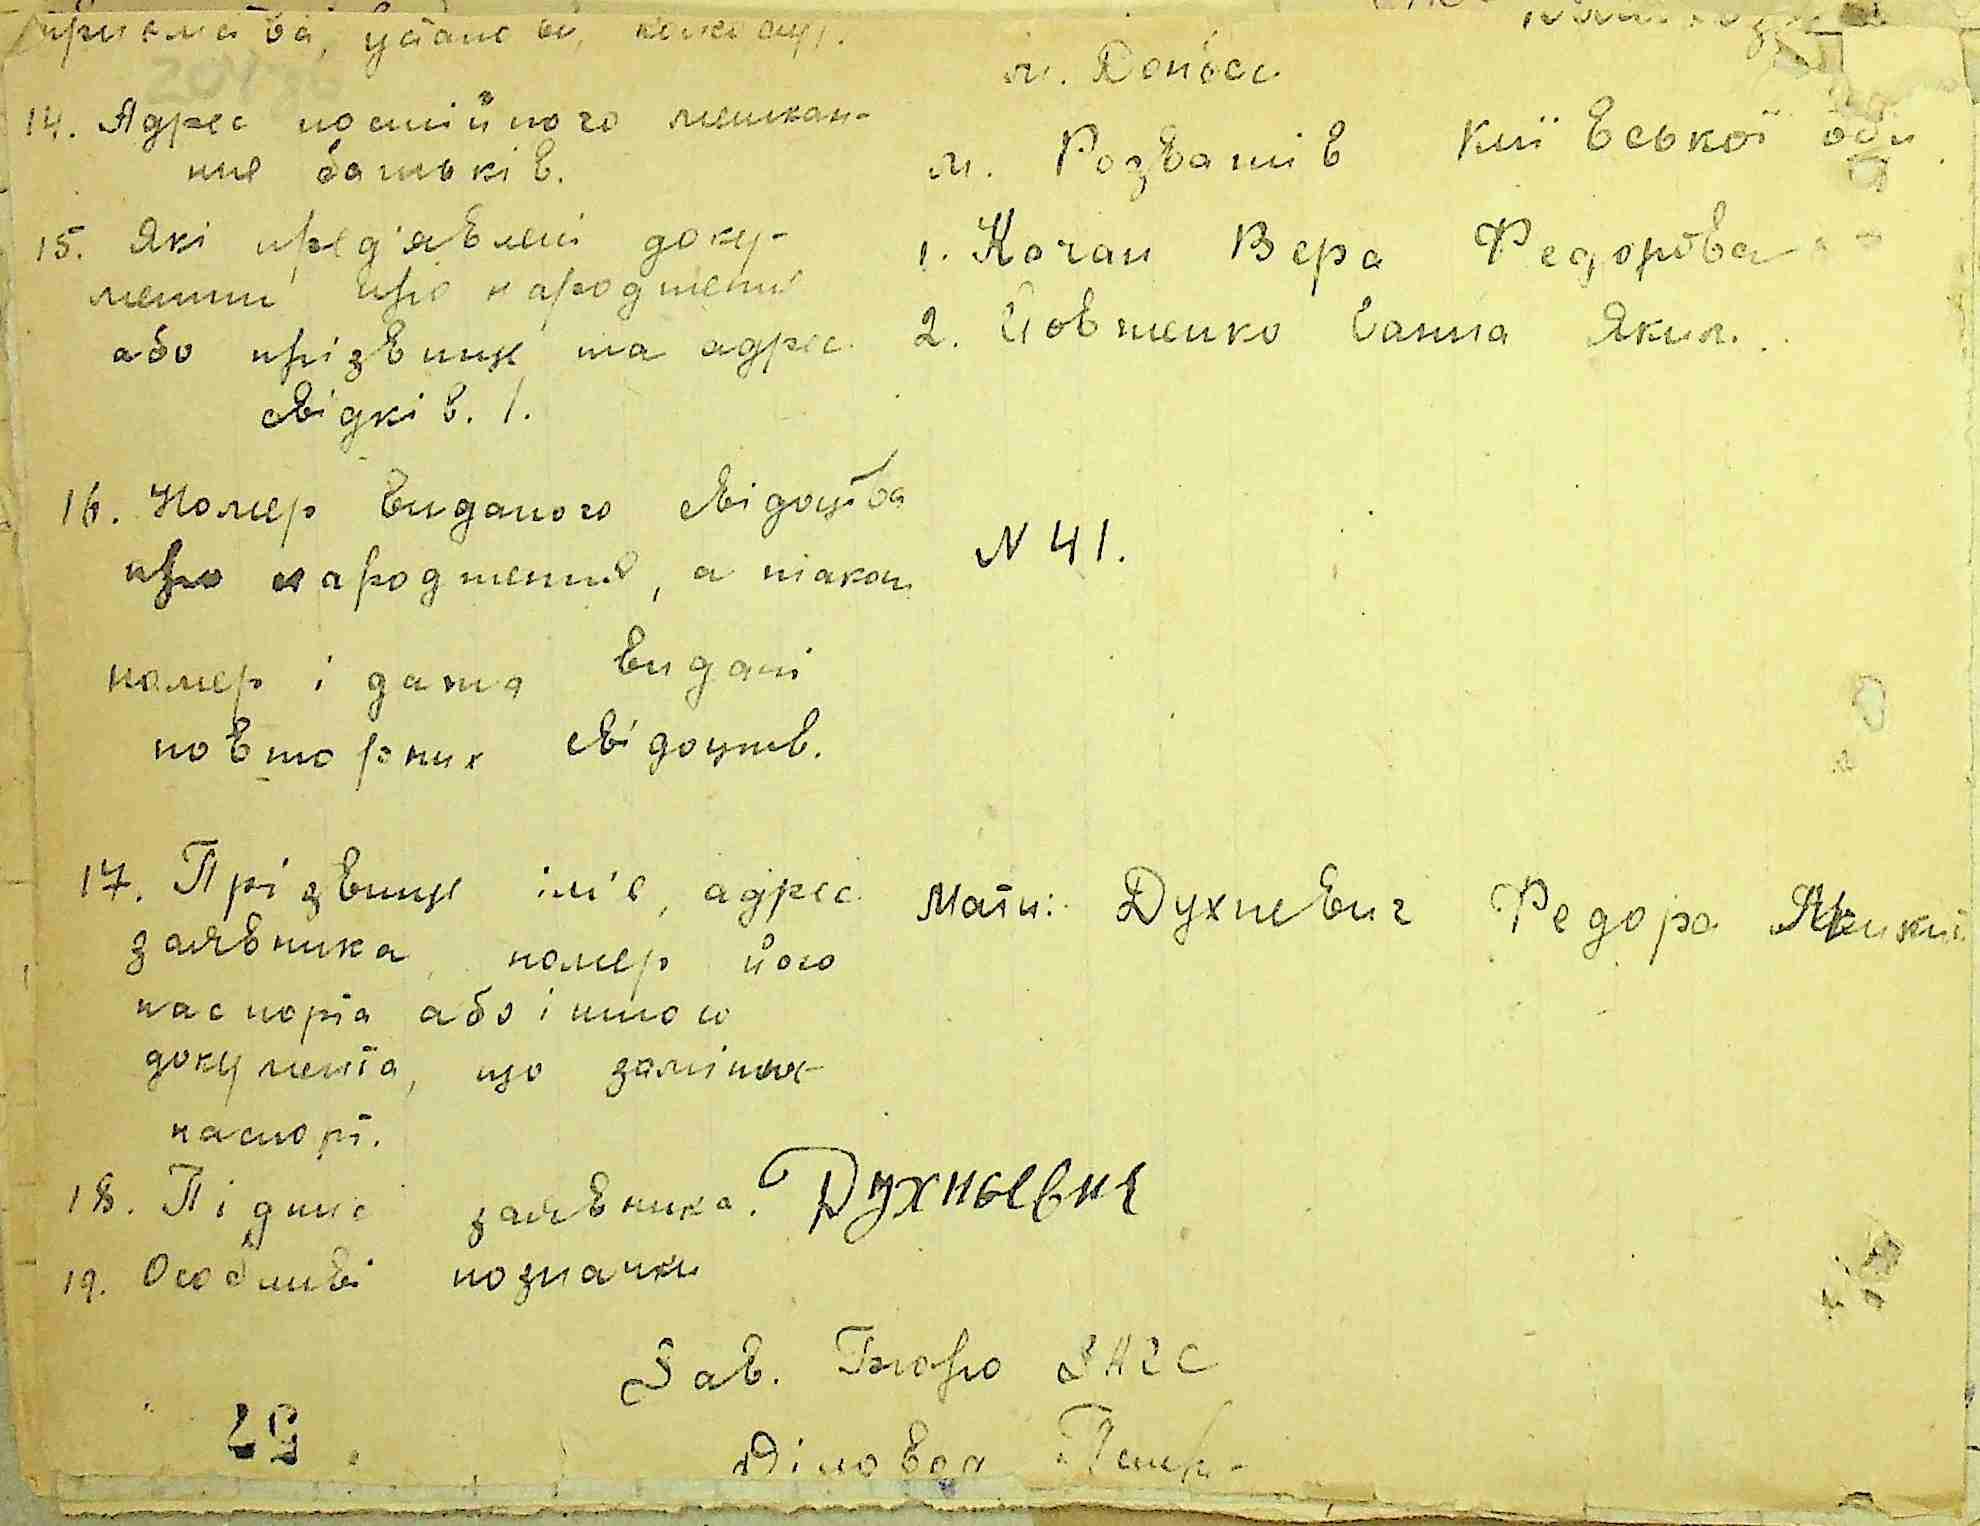 м. Донбас
14. Адрес постійного мешкан-
ня батьків.
м. Розважів Київської обл
15. Які пред'явлені доку-
менти про народження
або прізвище та адрес
свідків. 1.
1. Кочан Вера Федорівна
2. Йовженко Ганна Яким.
16. Номер виданого свідоцтва
про народження, а також
номер і дата видачі
повторних свідоцтв.
N 41.
17. Прізвище ім'я, адрес
заявника, номер його
паспорта або іншого
документа, що заміняє
паспорт.
Мати: Духневич Федора
18. Підпис заявника. Духньевич
19. Особливі позначки
Зав. Бюро ЗАГС
Діловод
29